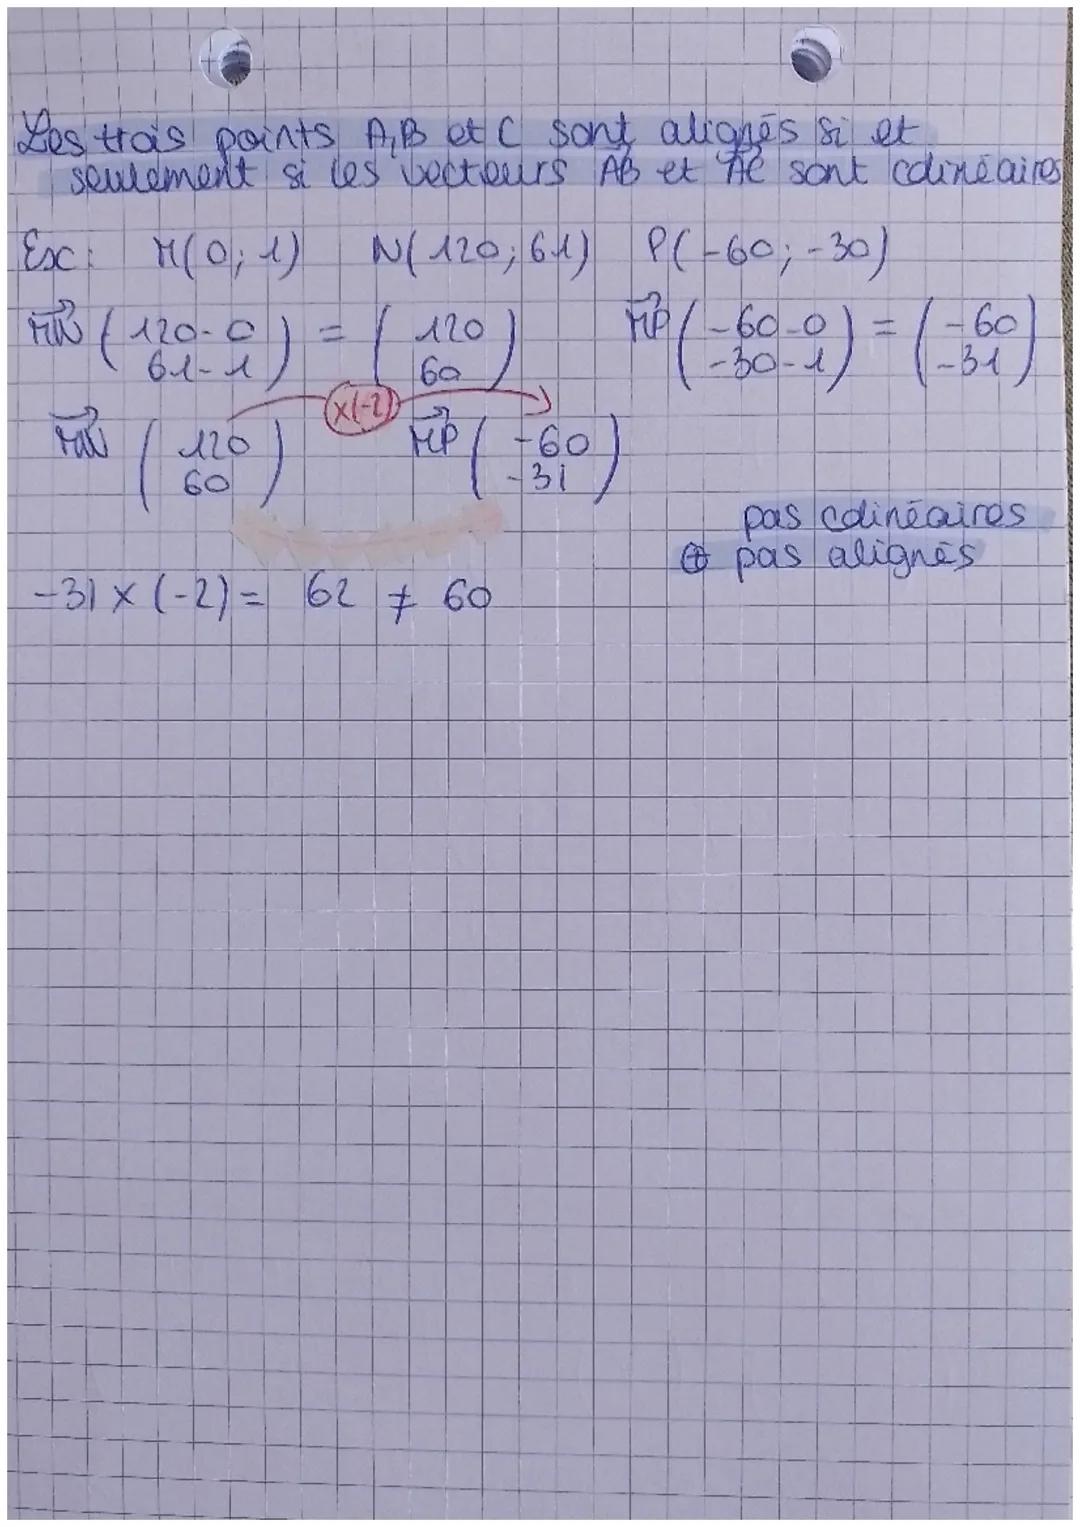 Les trois points A,B et C sont alignés si et
seulement si les vecteurs AB et AC sont colinéaires
Ex: M(0;1) N(120;61) P(-60;-30)
MN (120-0 61-1) = (120 60) MP (-60-0 -30-1) = (-60 -31)
x(-2)
MN (120 60) MP (-60 -31)
pas colinéaires
⊕ pas alignés
-31 x (-2) = 62 ≠ 60